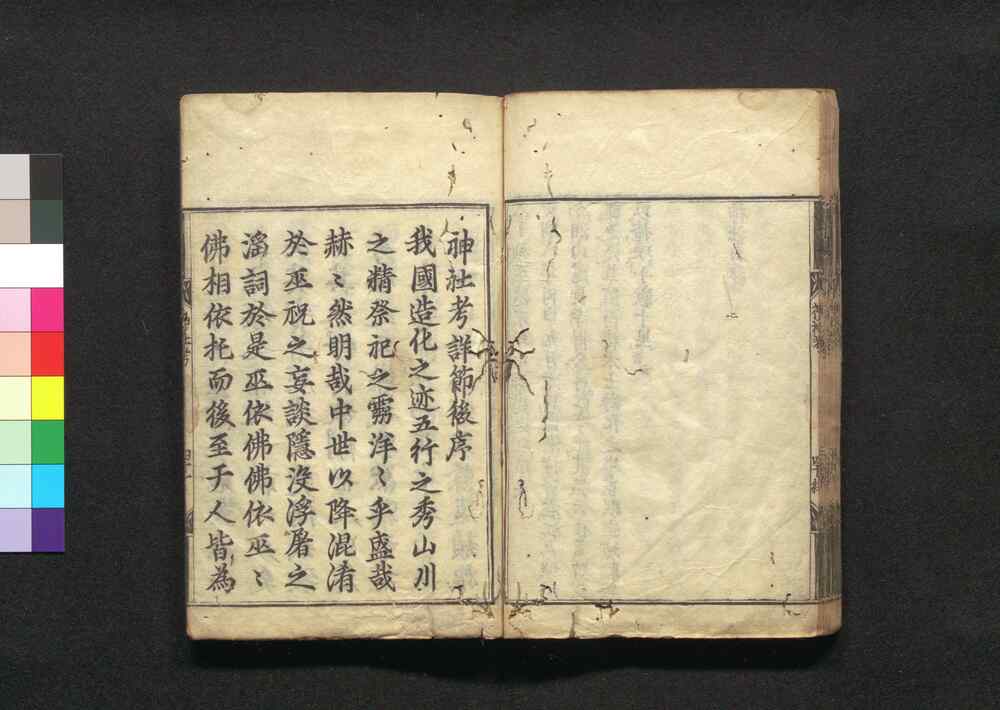 神社考詳節後序
我國造化之迹五行之秀山川
之精祭祀之雱洋〻乎盛哉
赫〻然明哉中世以降混淆
於巫祝之妄談隱沒浮屠之
滛詞於是巫依佛佛依巫〻
佛相依托而後至于人皆為